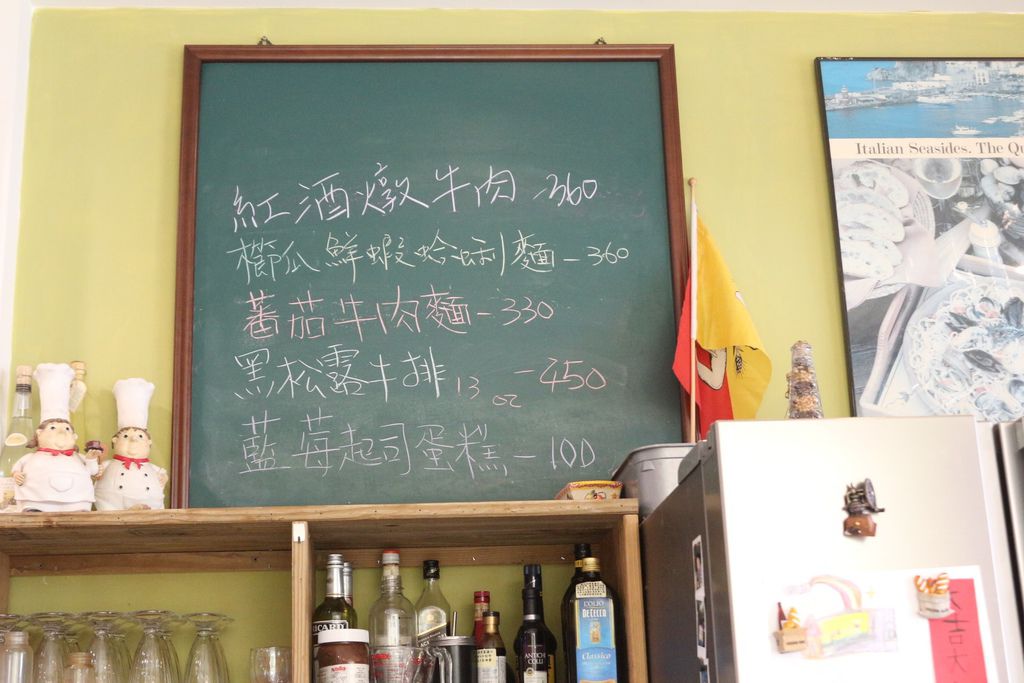 紅酒燉牛肉 360
櫛瓜鮮蝦蛤蜊麵-360
蕃茄牛肉麵-330
黑松露牛排 13 oz -450
藍莓起司蛋糕-100
Italian Seasides. The Qu
ICARD
L'OLIO
DE CECCO
Classico
ANTICHI
COLLI